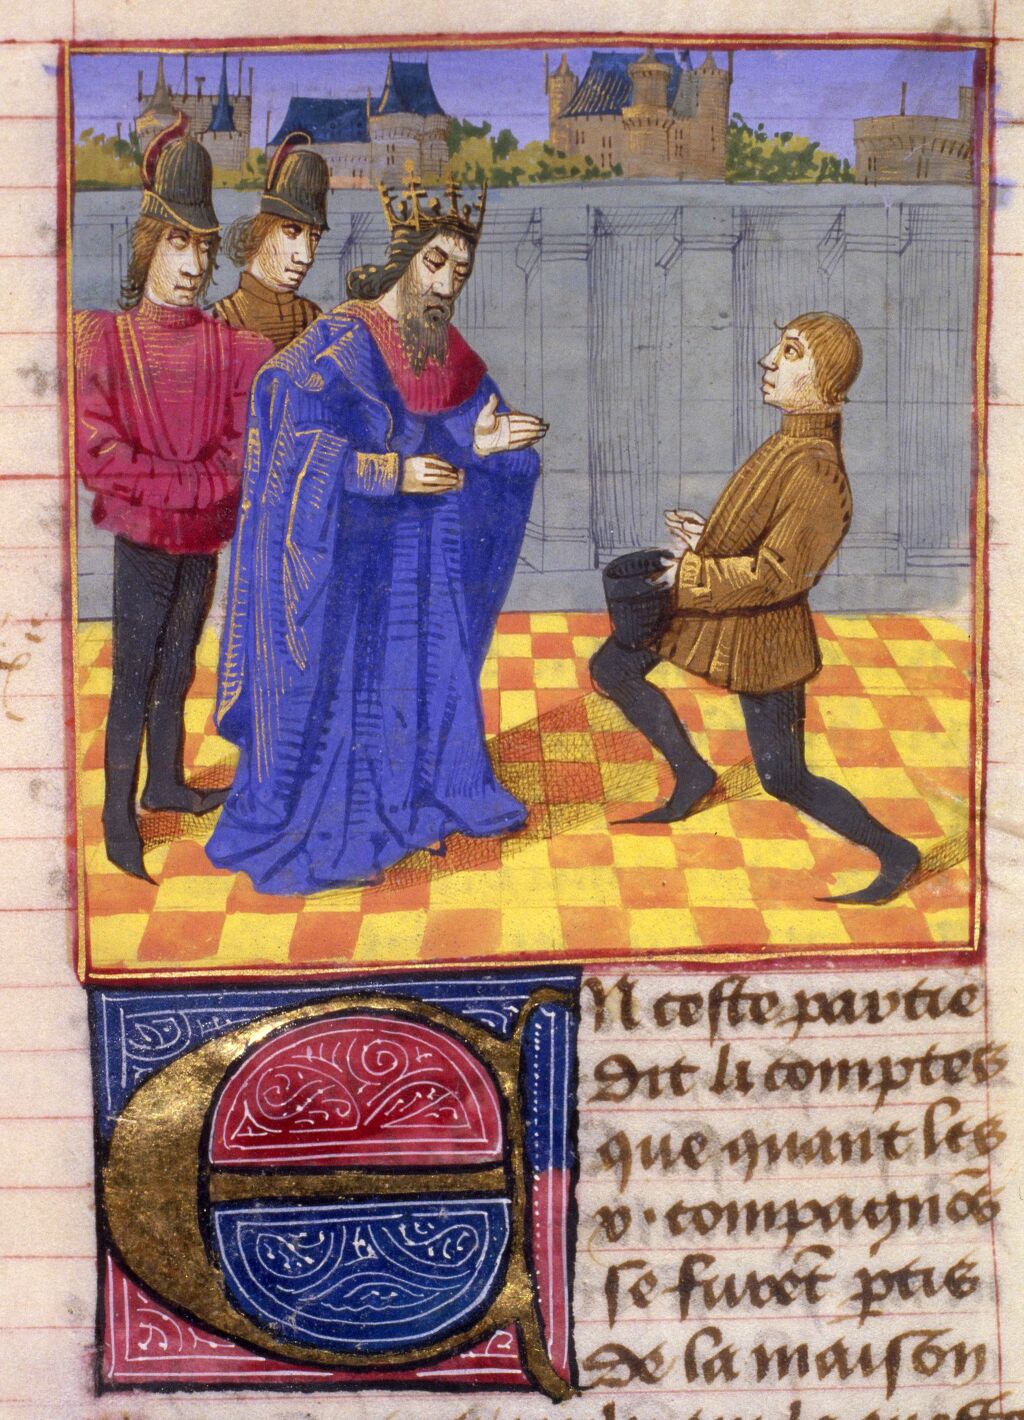 En ceste partie
dit li comptes
que quant les
v. compagnōs
se furēt ptis
de la maison